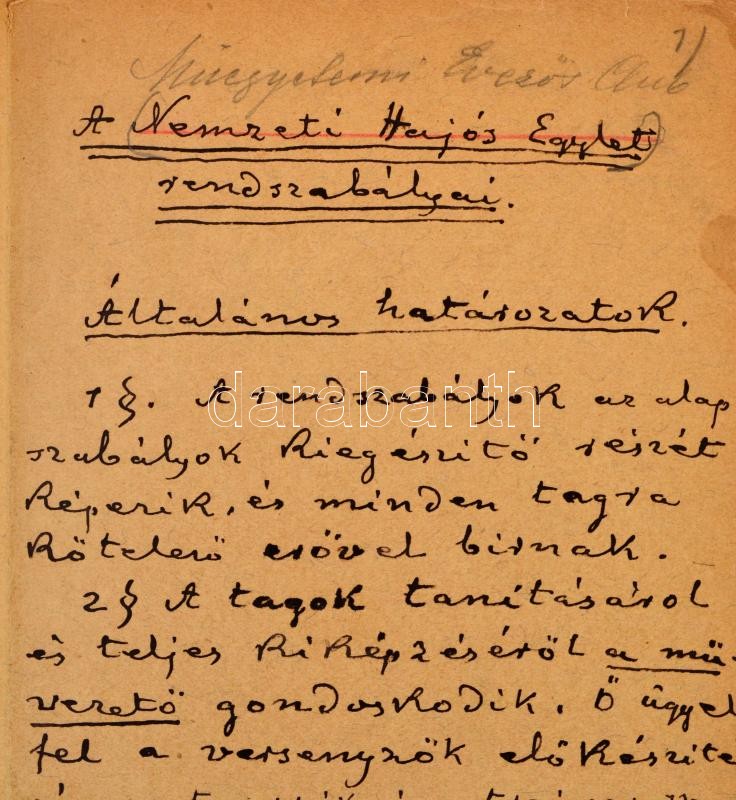 1)
Műegyetemi Evezős Club
A (Nemzeti Hajós Egylet)
rendszabályai.
Általános határozatok.
1 §. A rendszabályok az alap
szabályok kiegészítő részét
képezik, és minden tagra
kötelező erővel birnak.
2 § A tagok tanításáról
és teljes kiképzéséről a mű-
vezető gondoskodik. Ő ügyel
fel a versenyzők előkészíte
darabanth